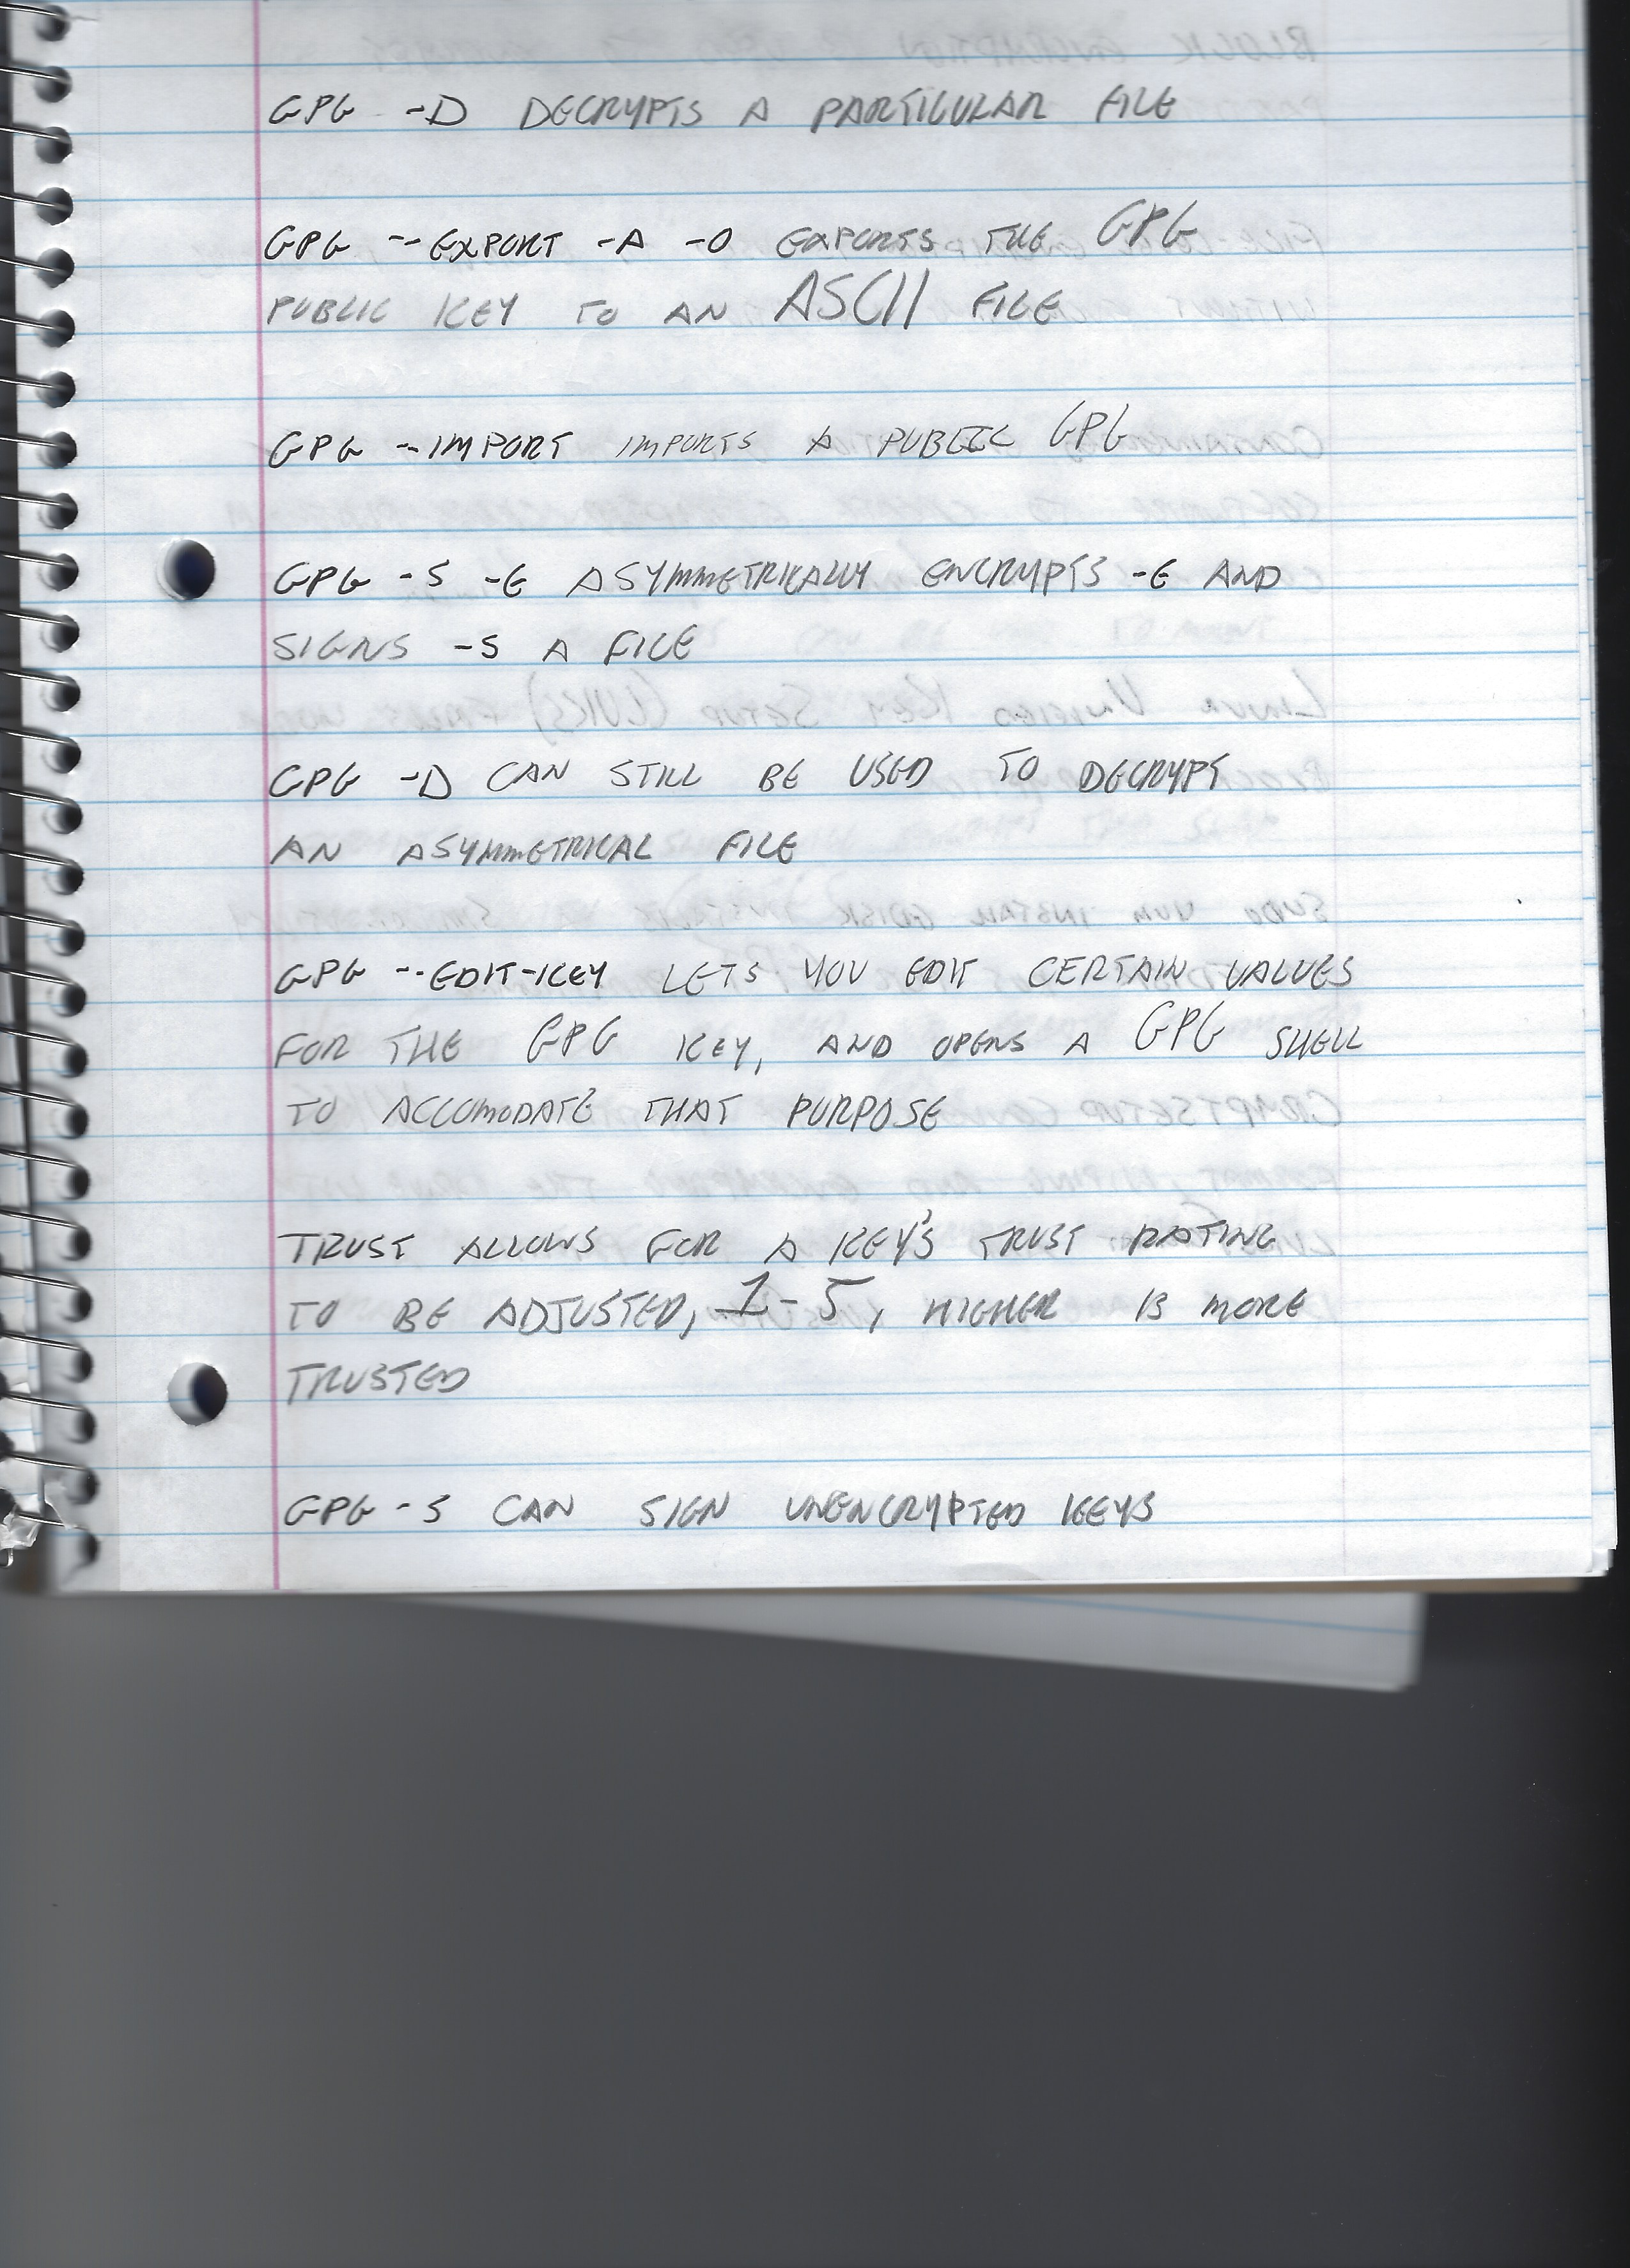 GPG -D DECRYPTS A PARTICULAR FILE
GPG --EXPORT -A -O EXPORTS THE GPG
PUBLIC KEY TO AN ASCII FILE
GPG --IMPORT IMPORTS A PUBLIC GPG
GPG -S -E ASYMMETRICALLY ENCRYPTS -E AND
SIGNS -S A FILE
GPG -D CAN STILL BE USED TO DECRYPT
AN ASYMMETRICAL FILE
GPG --EDIT-KEY LETS YOU EDIT CERTAIN VALUES
FOR THE GPG KEY, AND OPENS A GPG SHELL
TO ACCOMODATE THAT PURPOSE
TRUST ALLOWS FOR A KEY'S TRUST RATING
TO BE ADJUSTED, 1-5, HIGHER IS MORE
TRUSTED
GPG -S CAN SIGN UNENCRYPTED KEYS